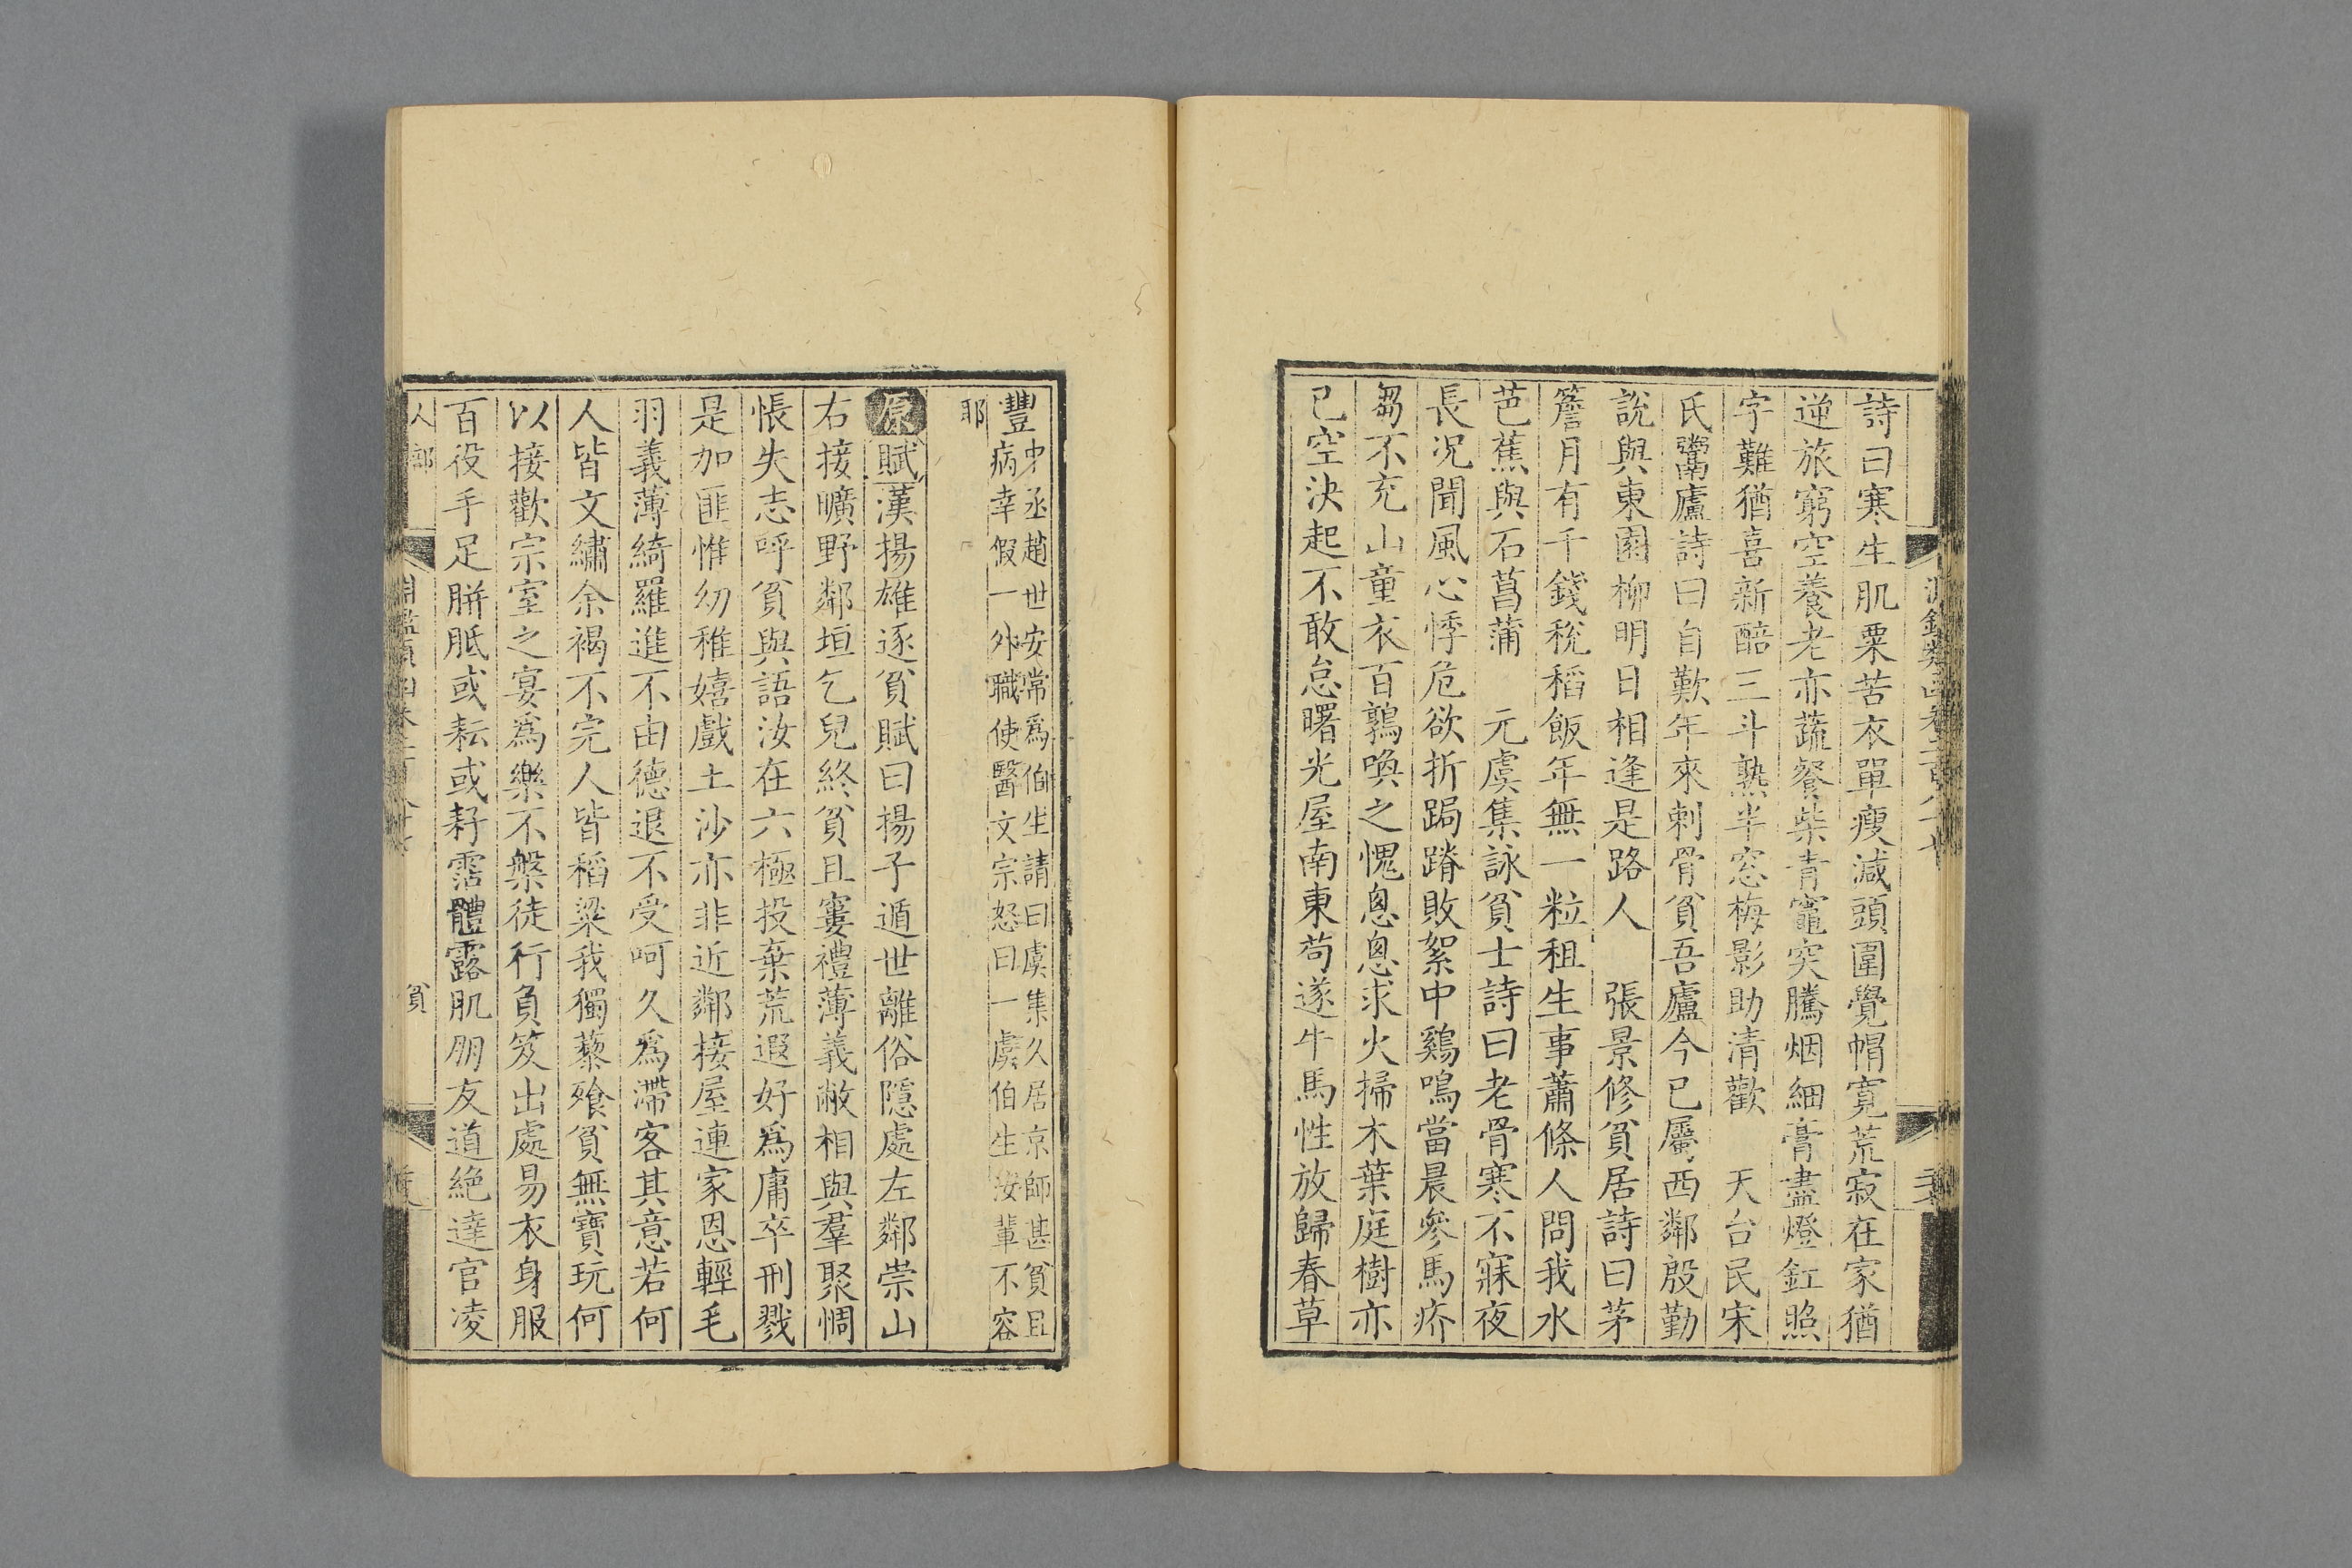 詩曰寒生肌粟苦衣單瘦減頭圍覺帽寛荒寂在家猶
逆旅窮空養老亦蔬餐柴青竈突騰烟細膏盡燈釭照
字難猶喜新醅三斗熟半窓梅影助清歡　天台民宋
氏鬻廬詩曰自歎年來刺骨貧吾廬今已屬西鄰殷勤
說與東園柳明日相逢是路人　張景修貧居詩曰茅
簷月有千錢稅稻飯年無一粒租生事蕭條人問我水
芭蕉與石菖蒲　元虞集詠貧士詩曰老骨寒不寐夜
長況聞風心悸危欲折跼蹐敗絮中鷄鳴當晨參馬疥
芻不充山童衣百鶉喚之愧恖恖求火掃木葉庭樹亦
已空決起不敢怠曙光屋南東苟遂牛馬性放歸春草
豐中丞趙世安常爲伯生請曰虞集久居京師甚貧且
病幸假一外職使醫文宗怒曰一虞伯生汝輩不容
耶
原賦漢揚雄逐貧賦曰揚子遁世離俗隱處左鄰崇山
右接曠野鄰垣乞兒終貧且窶禮薄義敝相與羣聚惆
悵失志呼貧與語汝在六極投棄荒遐好爲庸卒刑戮
是加匪惟幼稚嬉戲土沙亦非近鄰接屋連家恩輕毛
羽義薄綺羅進不由德退不受呵久爲滯客其意若何
人皆文繡余褐不完人皆稻粱我獨藜飱貧無寶玩何
以接歡宗室之宴爲樂不槃徒行負笈出處易衣身服
百役手足胼胝或耘或耔霑體露肌朋友道絕達官凌
人部
淵鑑類函卷二百八十七
貧